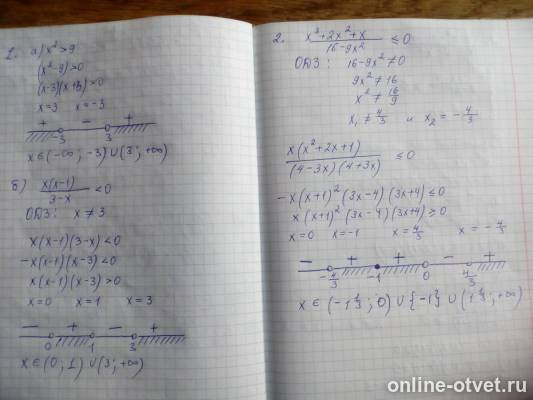 1. а) x² > 9
(x²-9) > 0
(x-3)(x+3) > 0
x=3 x=-3
+ - +
-3 3
x∈(-∞; -3)∪(3; +∞)
б) x(x-1)/3-x < 0
ОДЗ: x ≠ 3
x(x-1)(3-x) < 0
-x(x-1)(x-3) < 0
x(x-1)(x-3) > 0
x=0 x=1 x=3
- + - +
0 1 3
x∈(0; 1)∪(3; +∞)
2. x³+2x²+x/16-9x² ≤ 0
ОДЗ: 16-9x² ≠ 0
9x² ≠ 16
x² ≠ 16/9
x₁ ≠ 4/3 и x₂ = -4/3
x(x²+2x+1)/(4-3x)(4+3x) ≤ 0
-x(x+1)²(3x-4)(3x+4) ≤ 0
x(x+1)²(3x-4)(3x+4) ≥ 0
x=0 x=-1 x=4/3 x=-4/3
- + + - +
-4/3 -1 0 4/3
x∈(-1 ⅓; 0)∪{-1}∪(1 ⅓; +∞)
online-otvet.ru